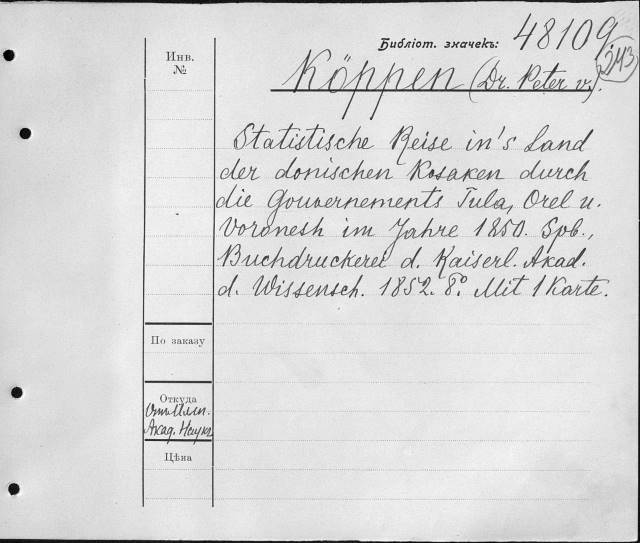 Библіот. значекъ: 48109.
243
Инв.
№
Köppen (Dr. Peter v.).
Statistische Reise in's Land
der donischen Kosaken durch
die Gouvernements Tula, Orel u.
Voronesh im Jahre 1850. Spb.,
Buchdruckerei d. Kaiserl. Akad.
d. Wissensch. 1852. 8º. Mit 1 Karte.
По заказу
Откуда
Отъ Имп.
Акад. Наукъ
Цѣна